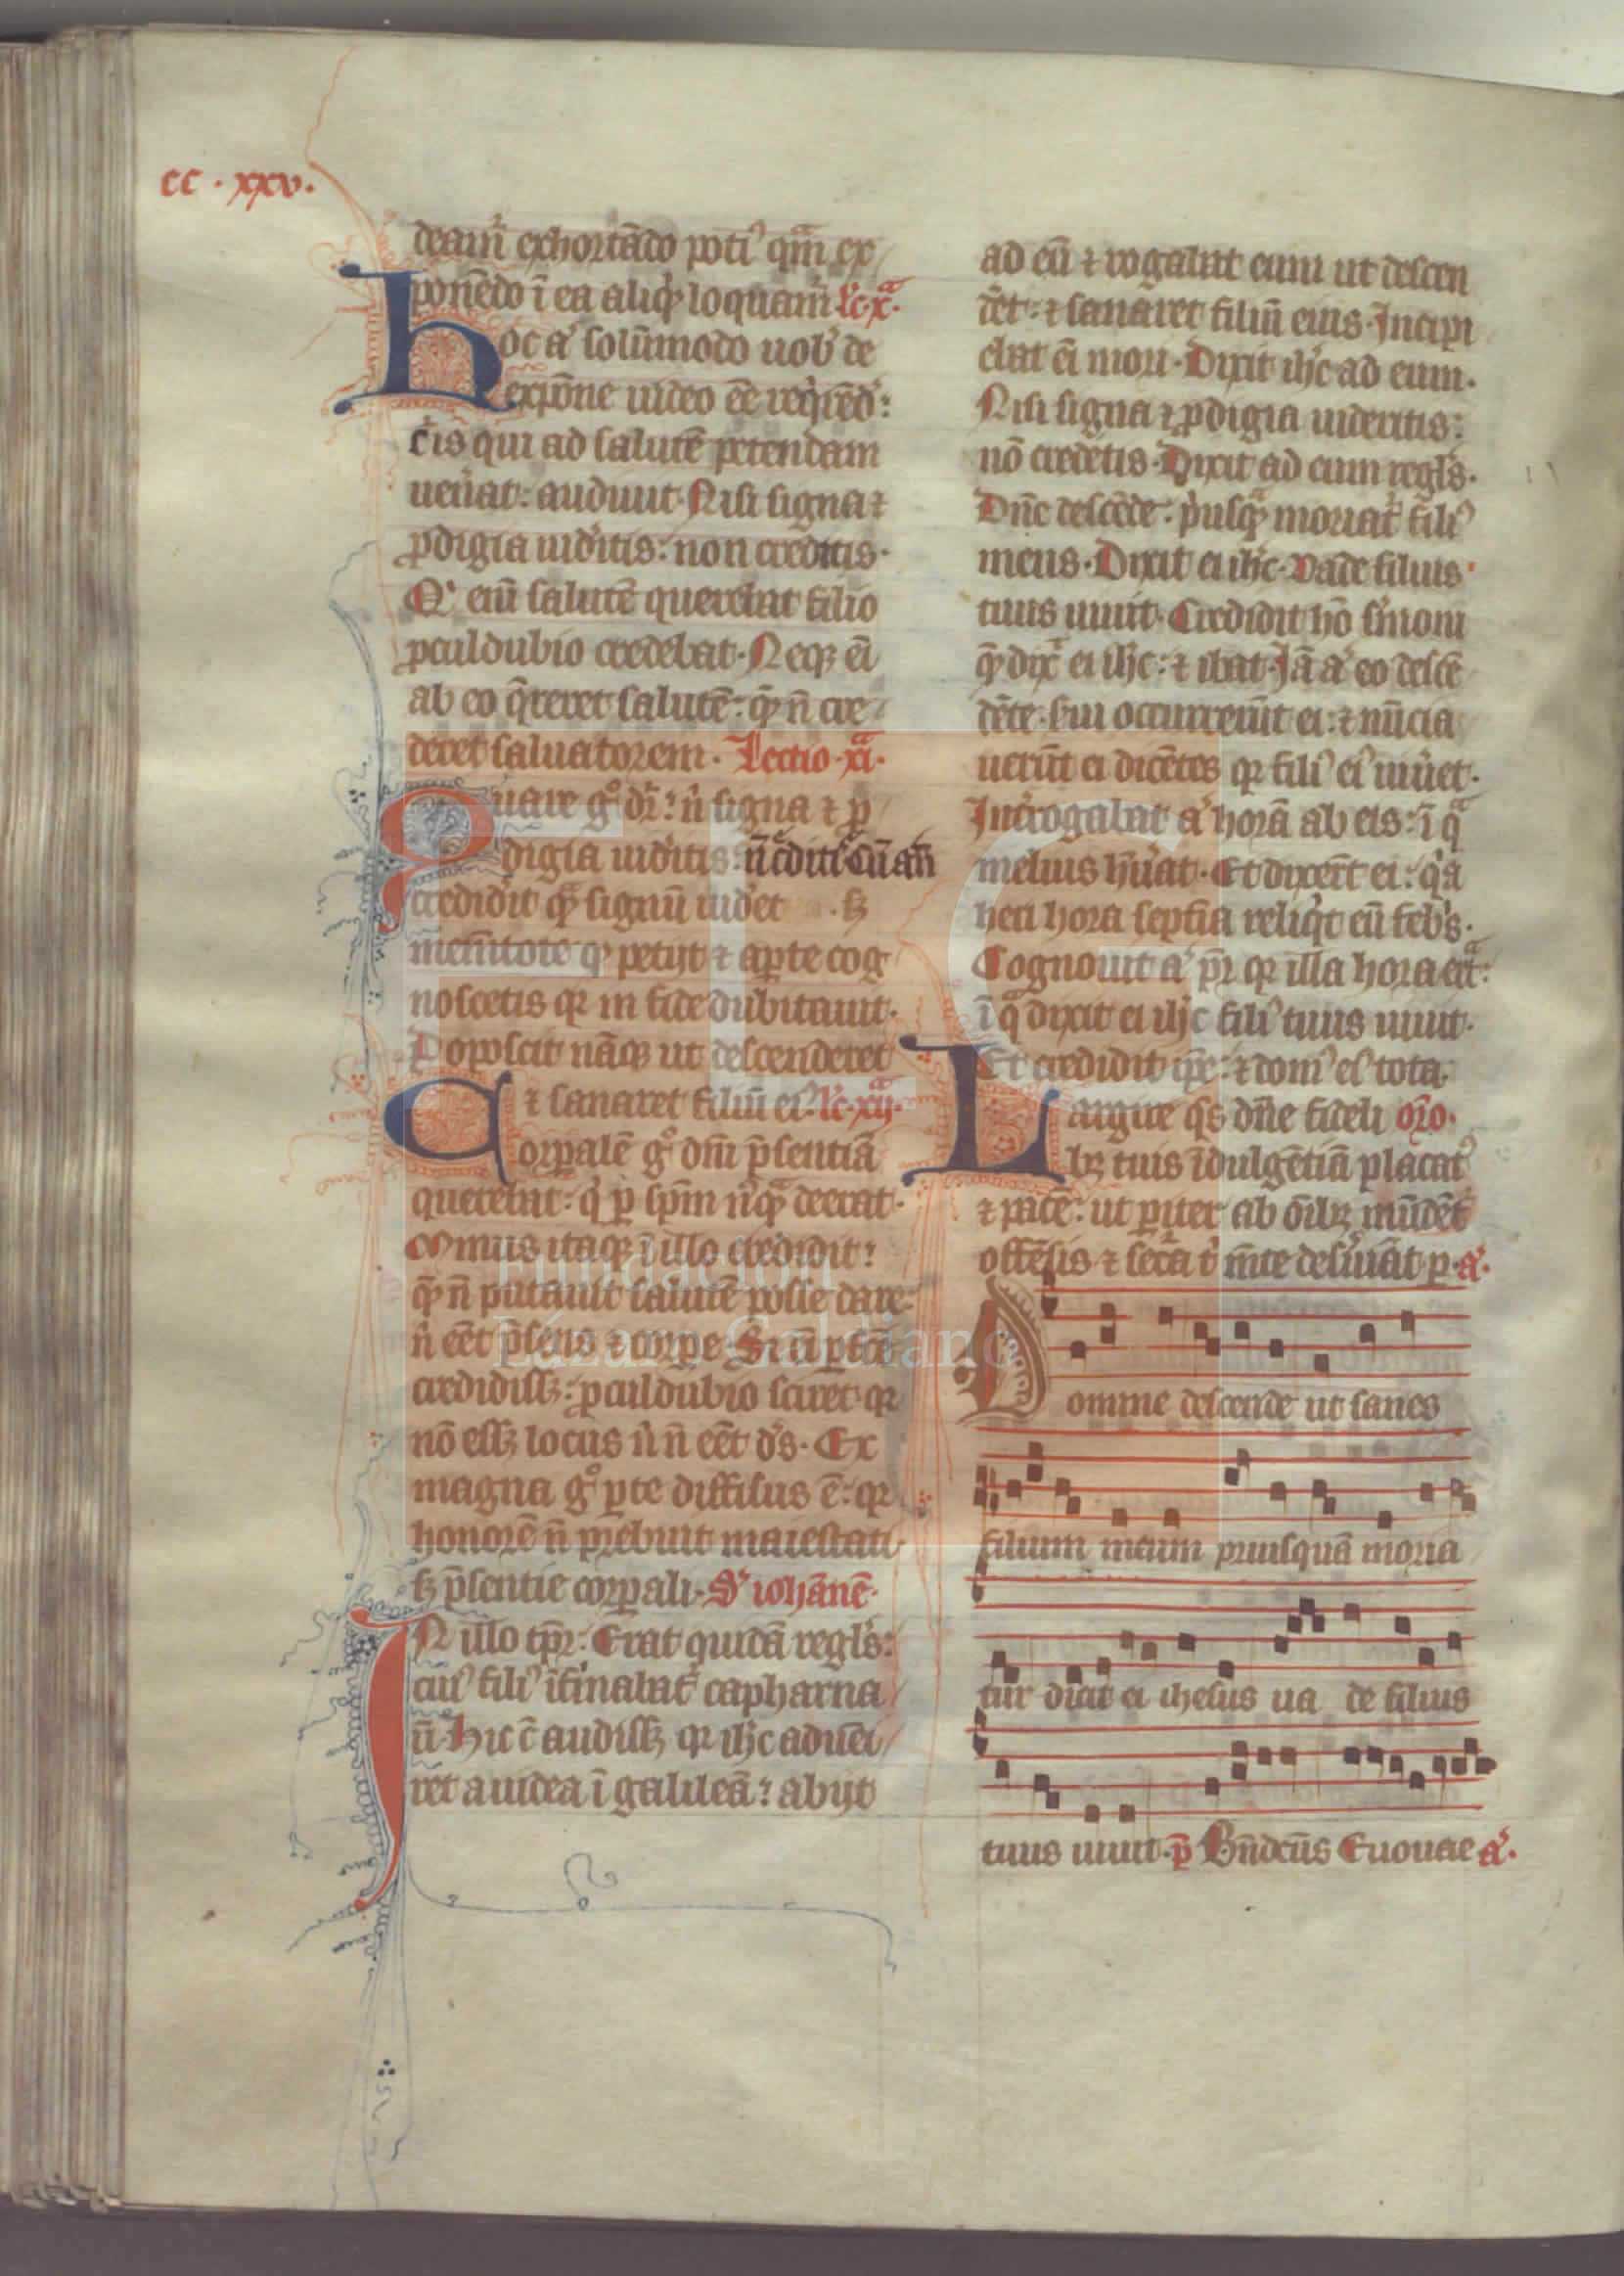 cc . xxv.
deam᷑ exhortādo potiꝰ qͣm ex
ponēdo ī ea aliqͦ loquam᷑ lc̄.xͣ.
hoc aͥ solūmodo uob̾ de
expōne uideo eē reqͥrēd᷑:
c̾ is qui ad salutē petendam
uen̾at: audiuit. Nisi signa ⁊
ꝓdigia uid̾itis: non creditis.
Qͥ eiū salutē querebat filio
ꝓculdubio credebat. Neqꝫ eī
ab eo q̄reret salutē: qͣ n̄ cre
deret saluatorem. Lectio .xiͣ.
Quare gͦ dr̄: n̾ signa ⁊ ꝓ
digia uid̾itis: n̄ c̾ditis Cū an̄
credidit qͣ signū uid̾et . sꝫ
mem̄tote qͥ petijt ⁊ aꝑte cog
noscetis qꝛ in fide dubitauit.
Poposcit nāqꝫ ut descenderet
⁊ sanaret filiū eiꝰ. lc̄.xijͣ.
Corꝑalē gͦ dn̄i p̄sentiā
querebat: qͥ ꝑ sp̄m nūqͣ deerat.
Minus itaqꝫ ī illo credidit:
qͣ n̄ putauit salutē posse dare:
n̾ eēt p̄sens ⁊ corꝑe. Si eī ꝑfcē
credidissꝫ: ꝓculdubio sciret qꝛ
nō essꝫ locus ubi n̄ eēt d̾s. Ex
magna gͦ ꝑte diffisus ē: qꝛ
honorē n̄ prebuit maiestati
sꝫ p̄sentie corꝑali. Sꝫ iohānē.
IN illo tp̄r: Erat quidā regl̾s:
cuiꝰ filiꝰ īfirmabat᷑ capharna
ū. Hic c̄ audissꝫ qꝛ ihc̄ adueni
ret a iudea ī galileā: abijt
ad eū ⁊ rogabat eum ut descen
d̾et: ⁊ sanaret filiū eius. Incipi
ebat eī mori. Dixit ihc̄ ad eum.
Nisi signa ⁊ ꝓdigia uideritis:
nō credetis. Dixit ad eum regl̾s.
Dn̄e descēde: p̾usqͣ moriat᷑ filiꝰ
meus. Dixit ei ihc̄. Vade filius
tuus uiuit. Credidit hō s̾moni
qͣ dix̄ ei ihc̄: ⁊ ibat. Iā aͥ eo descē
dēte. s̾ui occurrerūt ei: ⁊ nūcia
uerūt ei dicētes qꝛ filiꝰ eiꝰ uiu̾et.
Int̾rogabat aͥ horā ab eis: ī qͣ
melius hūat. Et dixer̄t ei: qͥa
heri hora septīa reliqͥt eū feb̾s.
Cognouit aͥ pr̄ qꝛ illa hora erͣt:
ī qͣ dixit ei ihc̄ filiꝰ tuus uiuit.
Et credidit ip̄e: ⁊ domꝰ eiꝰ tota.
Largire qs̄ dn̄e fideli oro.
bꝫ tuis īdulgētiā placatꝰ
⁊ pacē: ut ꝑiter ab oībꝫ mūdēt᷑
offēsis ⁊ secͣa t̾ m̄te des̾uiāt. p. aͥ.
Domine descende ut sanes
filium meum priusquā moria
tur dicit ei ihesus ua de filius
tuus uiuit. p̄ Bn̄dcūs Euouae aͥ.
FLG
Fundación
Lázaro Galdiano